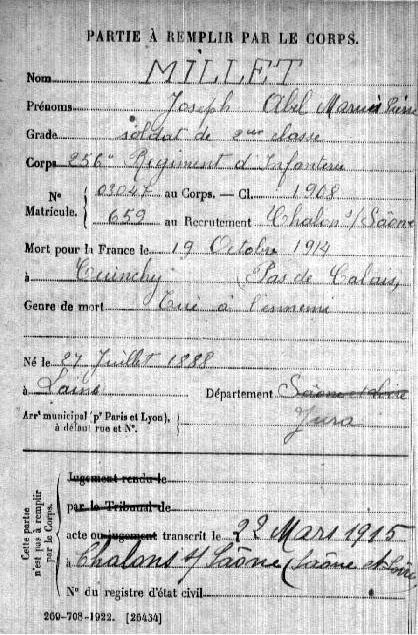 PARTIE À REMPLIR PAR LE CORPS.
Nom MILLET
Prénoms Joseph Abel Marius Pierre
Grade soldat de 2me classe
Corps 256e Régiment d'Infanterie
No Matricule. { 03047 au Corps. — Cl. 1908
659 au Recrutement Chalon s/ Saône
Mort pour la France le 19 Octobre 1914
à Cuinchy (Pas de Calais)
Genre de mort Tué à l'ennemi
Né le 27 Juillet 1888
à Département Saône et Loire
Arrt municipal (pr Paris et Lyon), à défaut rue et No. Jura
Cette partie n'est pas à remplir par le Corps.
Jugement rendu le
par le Tribunal de
acte ou jugement transcrit le 22 Mars 1915
à Chalons s/ Saône (Saône et Loire)
No du registre d'état civil
269-708-1922. [26434]